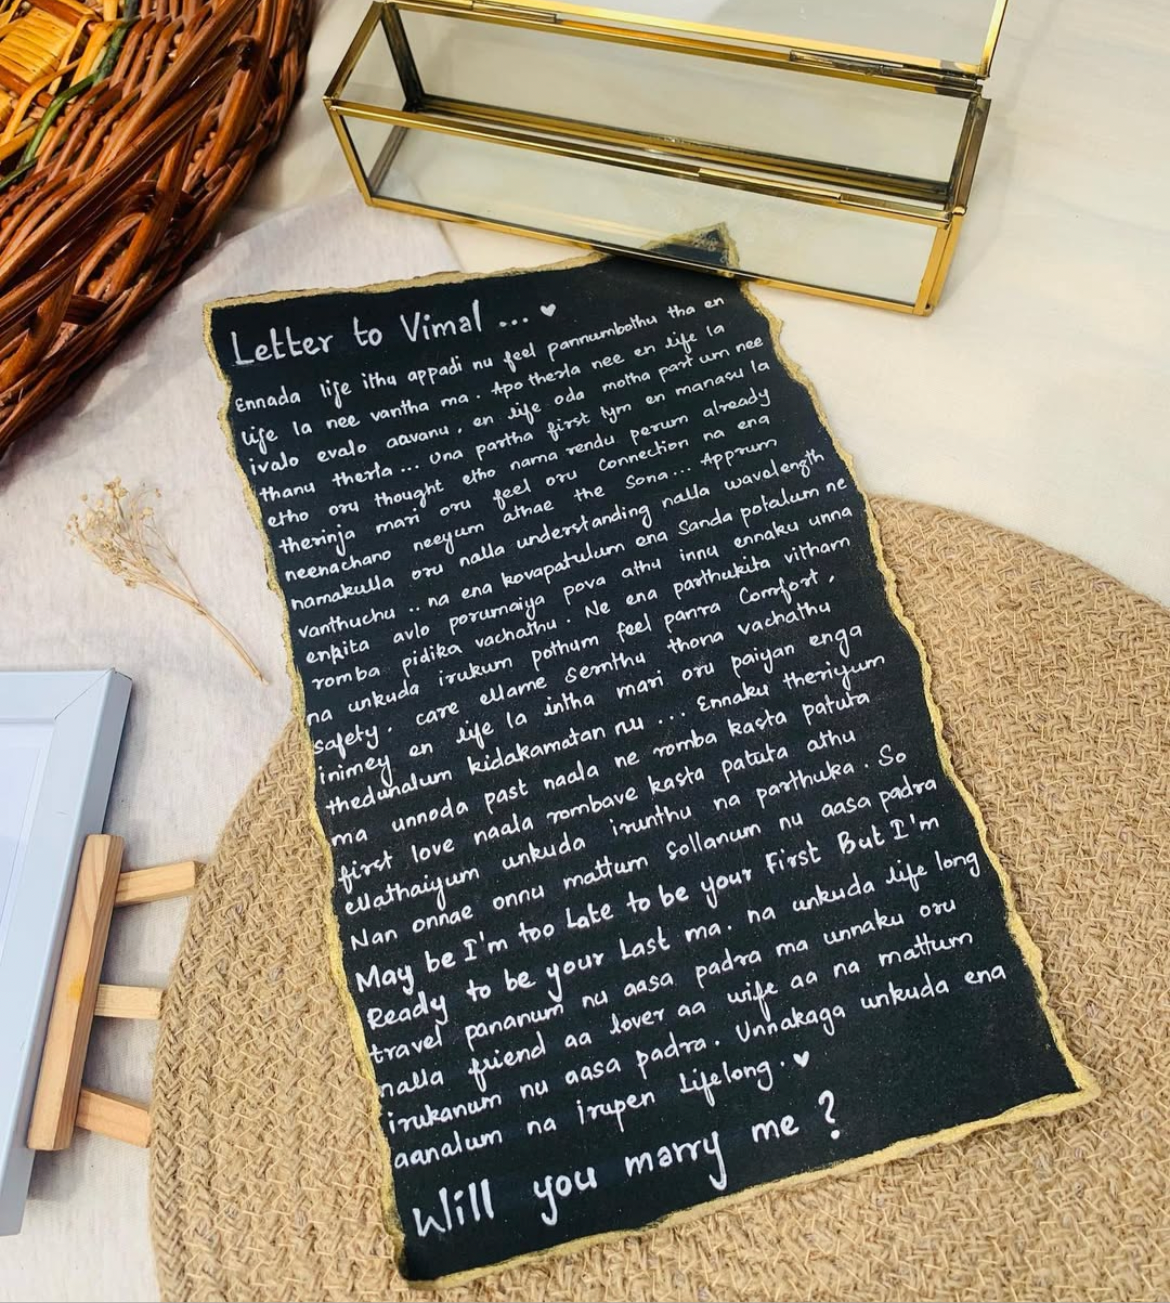 Letter to Vimal ... ♥
Ennada life ithu appadi nu feel pannumbothu tha en
life la nee vantha ma. Apo therla nee en life la
ivalo evalo aavanu, en life oda motha part um nee
thanu therla ... Una partha first tym en manasu la
etho oru thought etho nama rendu perum already
therinja mari oru feel oru Connection na ena
neenachano neeyum athae the Sona ... Apprum
namakulla oru nalla understanding nalla wavelength
vanthuchu .. na ena kovapatulum ena Sanda potalum ne
enkita avlo porumaiya pova athu innu ennaku unna
romba pidika vachathu. Ne ena parthukita vitham
na unkuda irukum pothum feel panra Comfort,
safety. care ellame sernthu thona vachathu
inimey en life la intha mari oru paiyan enga
thedunalum kidakamatan nu ... Ennaku theriyum
ma unnoda past naala ne romba kasta patuta
first love naala rombave kasta patuta athu
ellathaiyum unkuda irunthu na parthuka. So
Nan onnae onnu mattum sollanum nu aasa padra
May be I'm too Late to be your First But I'm
Ready to be your Last ma. na unkuda life long
travel pananum nu aasa padra ma unnaku oru
nalla friend aa lover aa wife aa na mattum
irukanum nu aasa padra. Unnakaga unkuda ena
aanalum na irupen Lifelong. ♥
Will you marry me ?